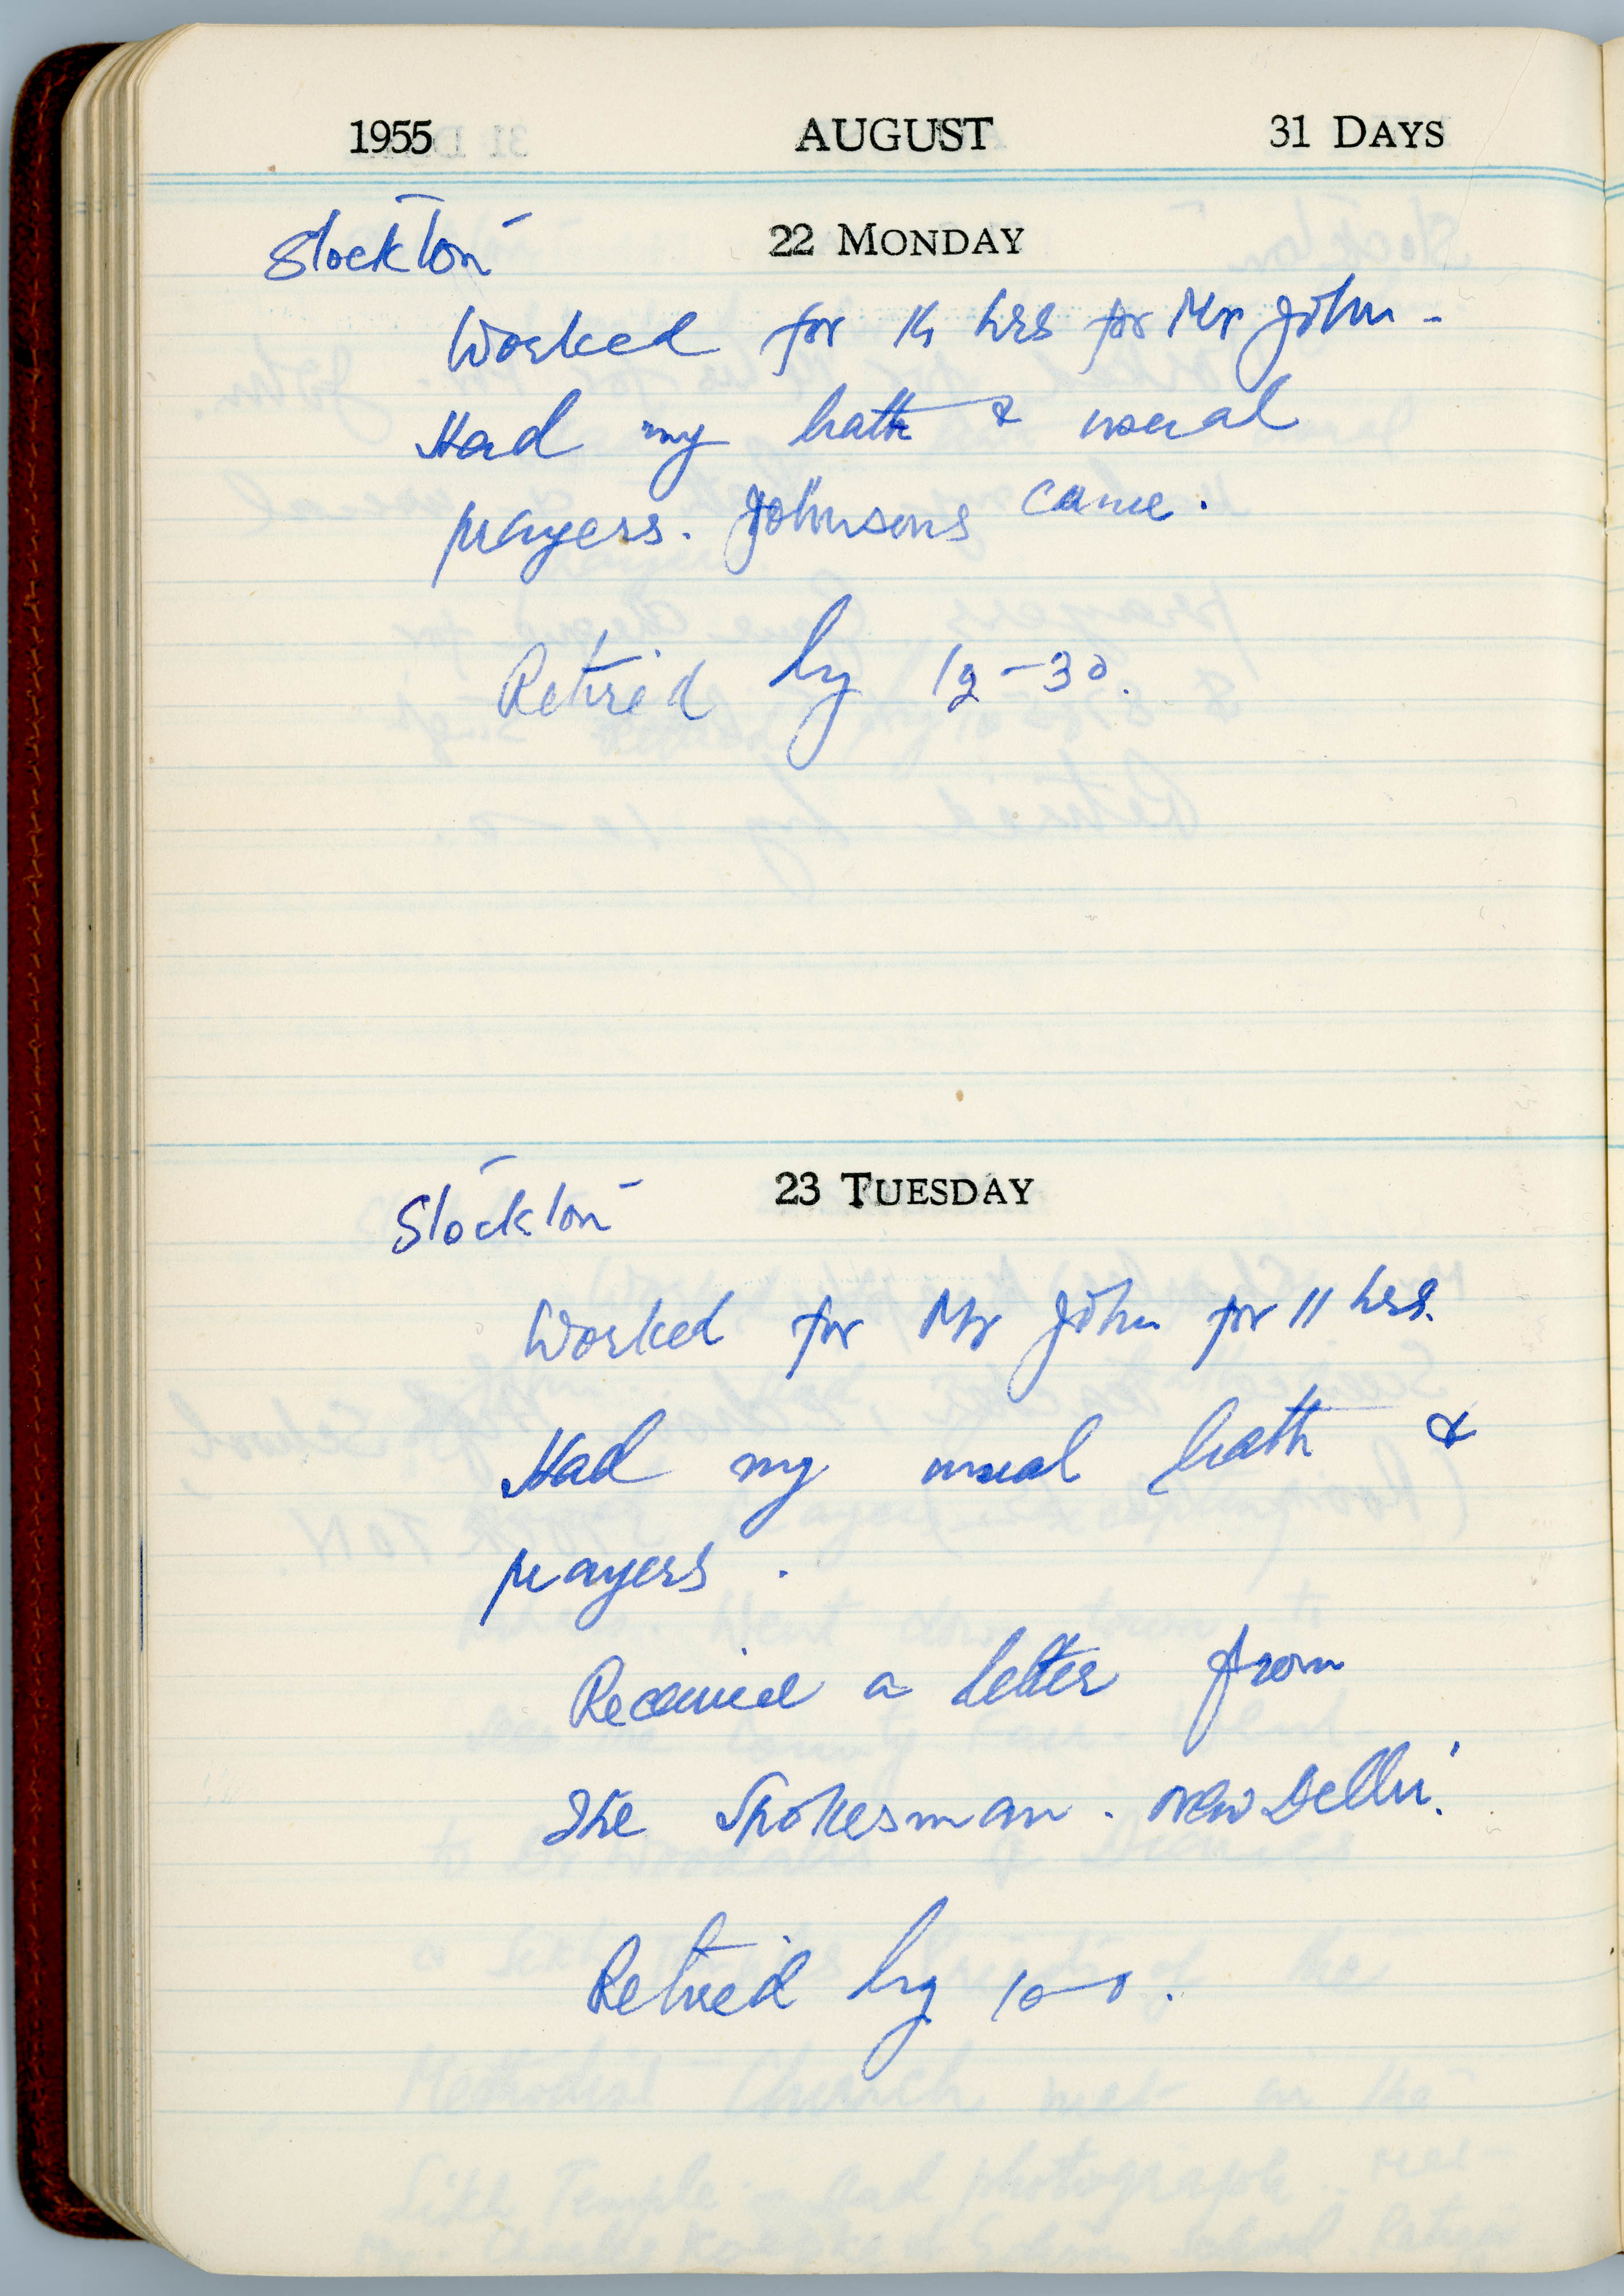 1955 AUGUST 31 DAYS
22 MONDAY
Stockton
Worked for 14 hrs for Mr John -
Had my bath & usual
prayers. Johnsons came.
Retired by 12-30.
23 TUESDAY
Stockton
Worked for Mr John for 11 hrs.
Had my usual bath &
prayers.
Received a letter from
The Spokesman. New Delhi.
Retired by 10-0.